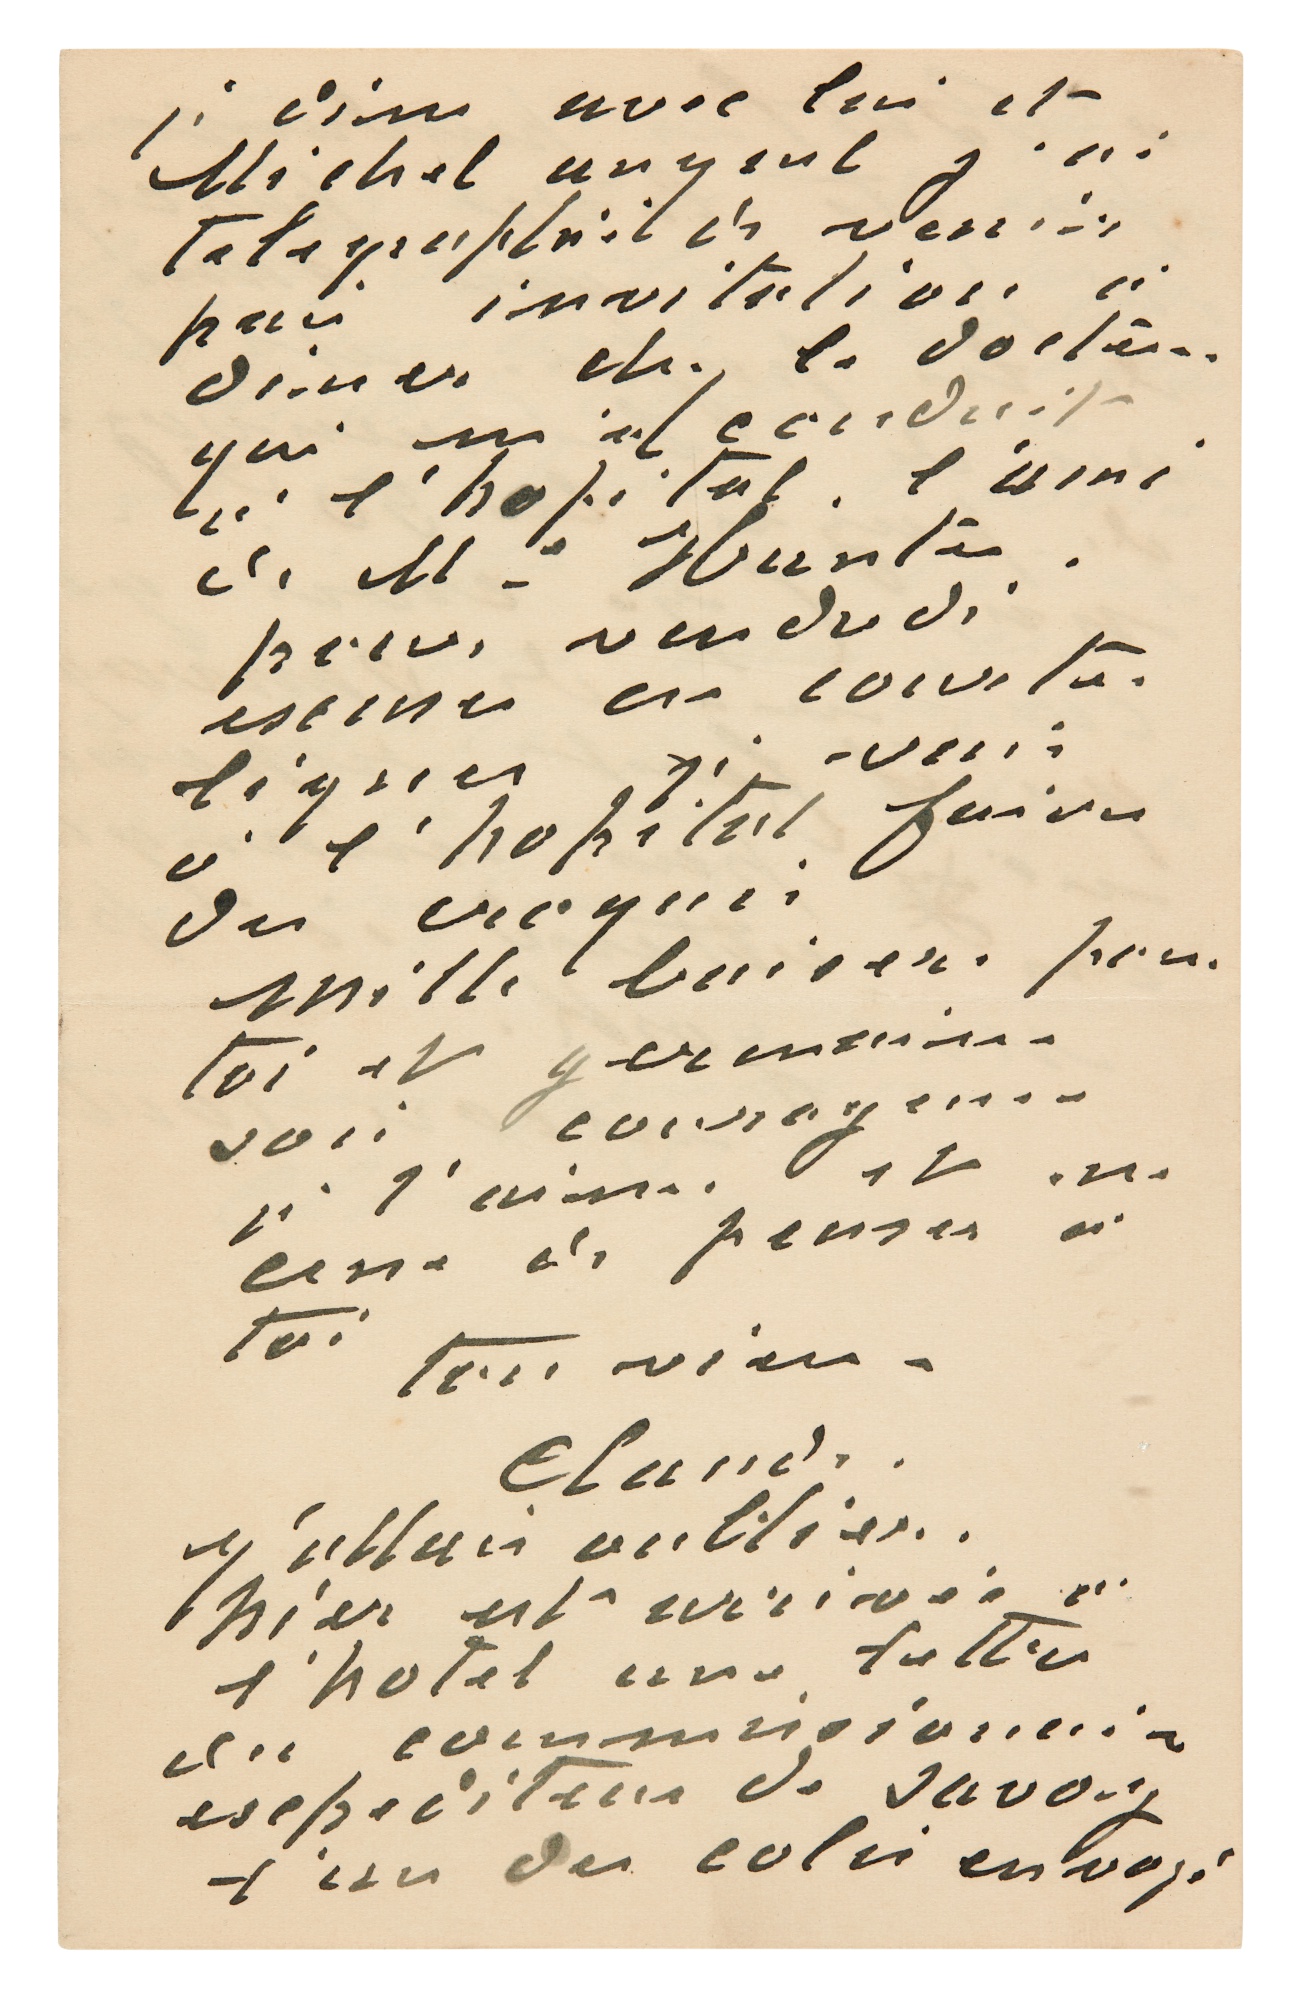 je dine avec lui et
Michel auquel j'ai
telegraphié de venir
puis invitation à
diner ch. le docteur
qui m'a conduit
à l'hopital, l'ami
de M Hunter.
pour vendredi
excuse ce
lignes j'ai
à l'hopital faire
des
Mille baisers pour
toi et germaine
sois courageuse
je t'aime et ne
cesse de penser à
toi
ton vieux
Claude.
J'allais oublier.
hier est arrivée à
l'hotel une lettre
du commissionnaire
expediteur de Savoy
l'un des colis envoyé